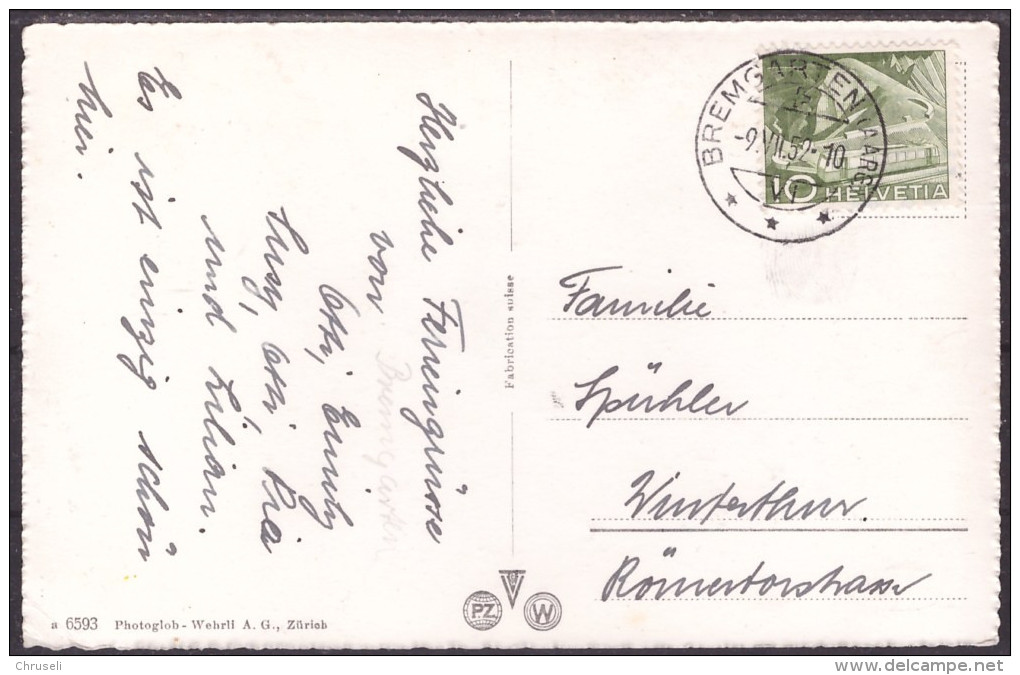 Herzliche Feriengrüsse
von Bremgarten
Otti, Emmy
Susy, Otti, Pia
und Lilian.
Es ist einzig schön
hier.
BREMGARTEN (AARG.)
-9.VII.52-10
VI
10 HELVETIA
Familie
Spühler
Winterthur
Römertorstrasse
Fabrication suisse
P.Z
W
a 6593 Photoglob-Wehrli A. G., Zürich
Chruseli
delcampe.net